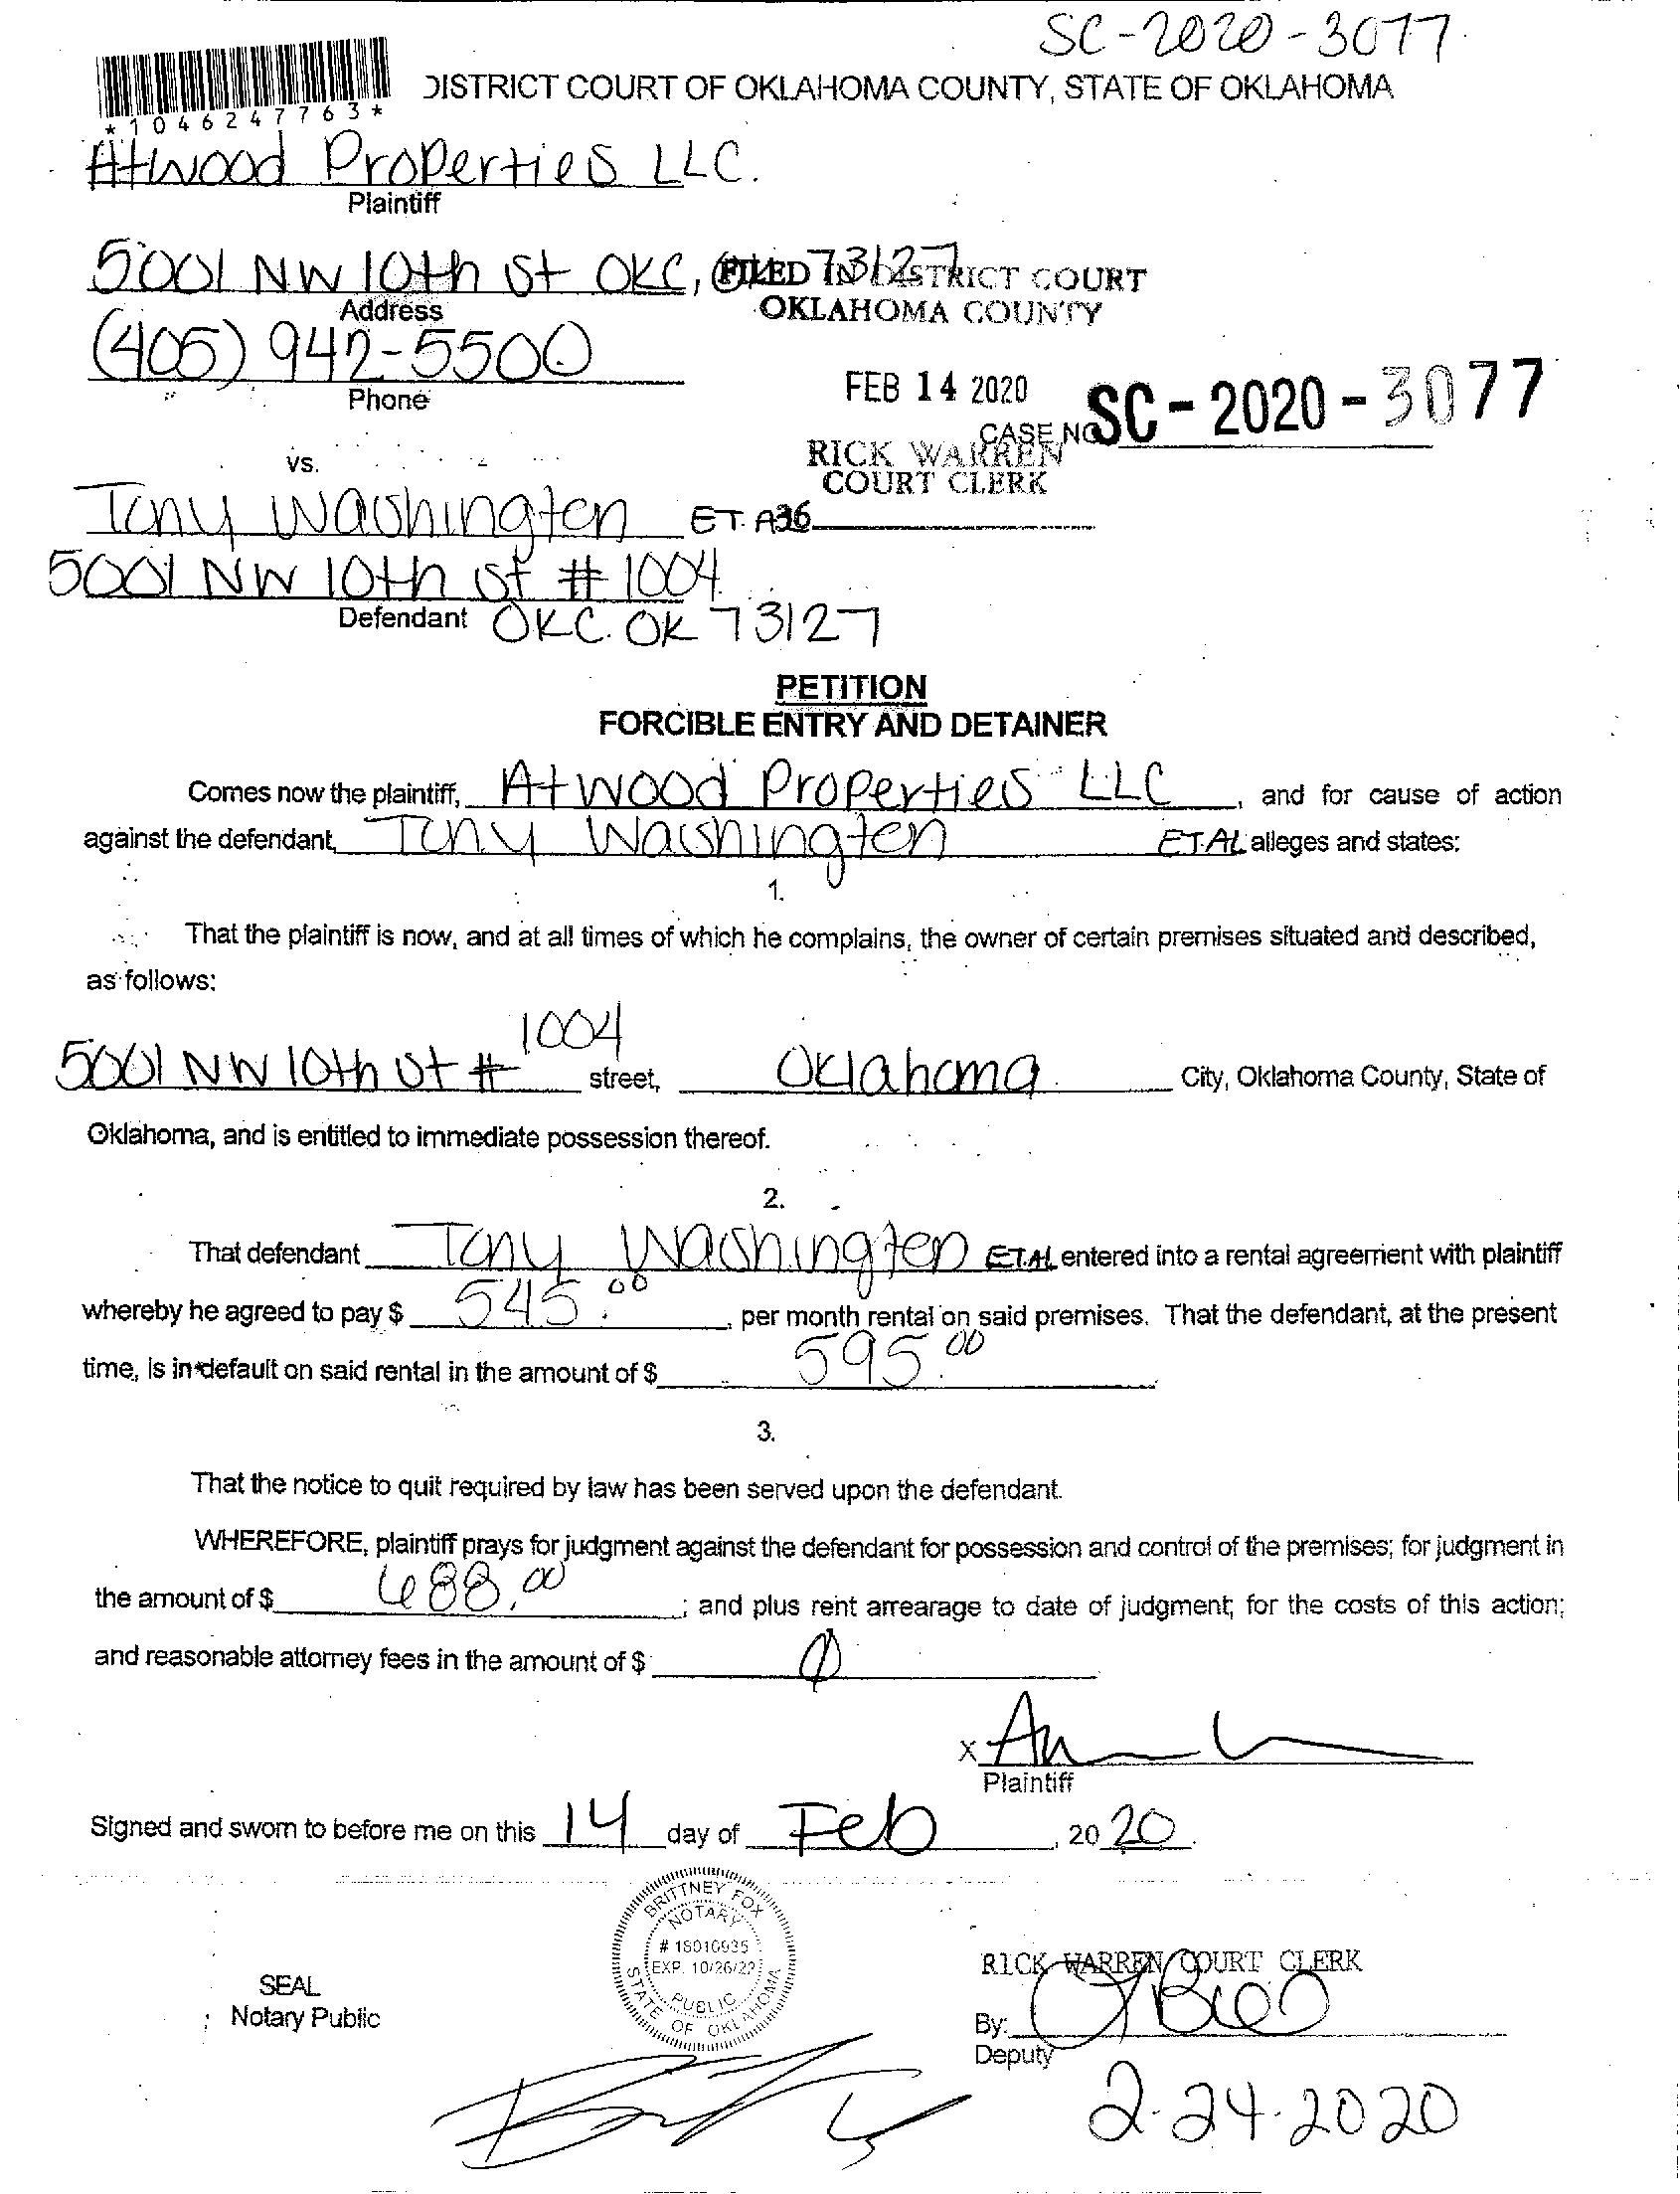 SC-2020-3077
DISTRICT COURT OF OKLAHOMA COUNTY, STATE OF OKLAHOMA
*1046247763*
Atwood Properties LLC.
Plaintiff
5001 NW 10th St OKC, OK 73127
FILED IN DISTRICT COURT
OKLAHOMA COUNTY
Address
(405) 942-5500
Phone
FEB 14 2020
CASE NO. SC-2020-3077
RICK WARREN
COURT CLERK
vs.
Tony Washington ET. AL
36
5001 NW 10th St # 1004
Defendant OKC. OK 73127
PETITION
FORCIBLE ENTRY AND DETAINER
Comes now the plaintiff, Atwood Properties LLC, and for cause of action
against the defendant, Tony Washington ET.AL alleges and states:
1.
That the plaintiff is now, and at all times of which he complains, the owner of certain premises situated and described,
as follows:
5001 NW 10th St # 1004 street, Oklahoma City, Oklahoma County, State of
Oklahoma, and is entitled to immediate possession thereof.
2.
That defendant Tony Washington ET.AL entered into a rental agreement with plaintiff
whereby he agreed to pay $ 545.00, per month rental on said premises. That the defendant, at the present
time, is in default on said rental in the amount of $ 595.00
3.
That the notice to quit required by law has been served upon the defendant.
WHEREFORE, plaintiff prays for judgment against the defendant for possession and control of the premises; for judgment in
the amount of $ 688.00; and plus rent arrearage to date of judgment; for the costs of this action;
and reasonable attorney fees in the amount of $ 0
X
Plaintiff
Signed and sworn to before me on this 14 day of Feb, 2020.
BRITTNEY FOX
NOTARY
# 18010935
EXP. 10/26/22
PUBLIC
STATE OF OKLAHOMA
SEAL
Notary Public
RICK WARREN COURT CLERK
By:
Deputy
2-24-2020